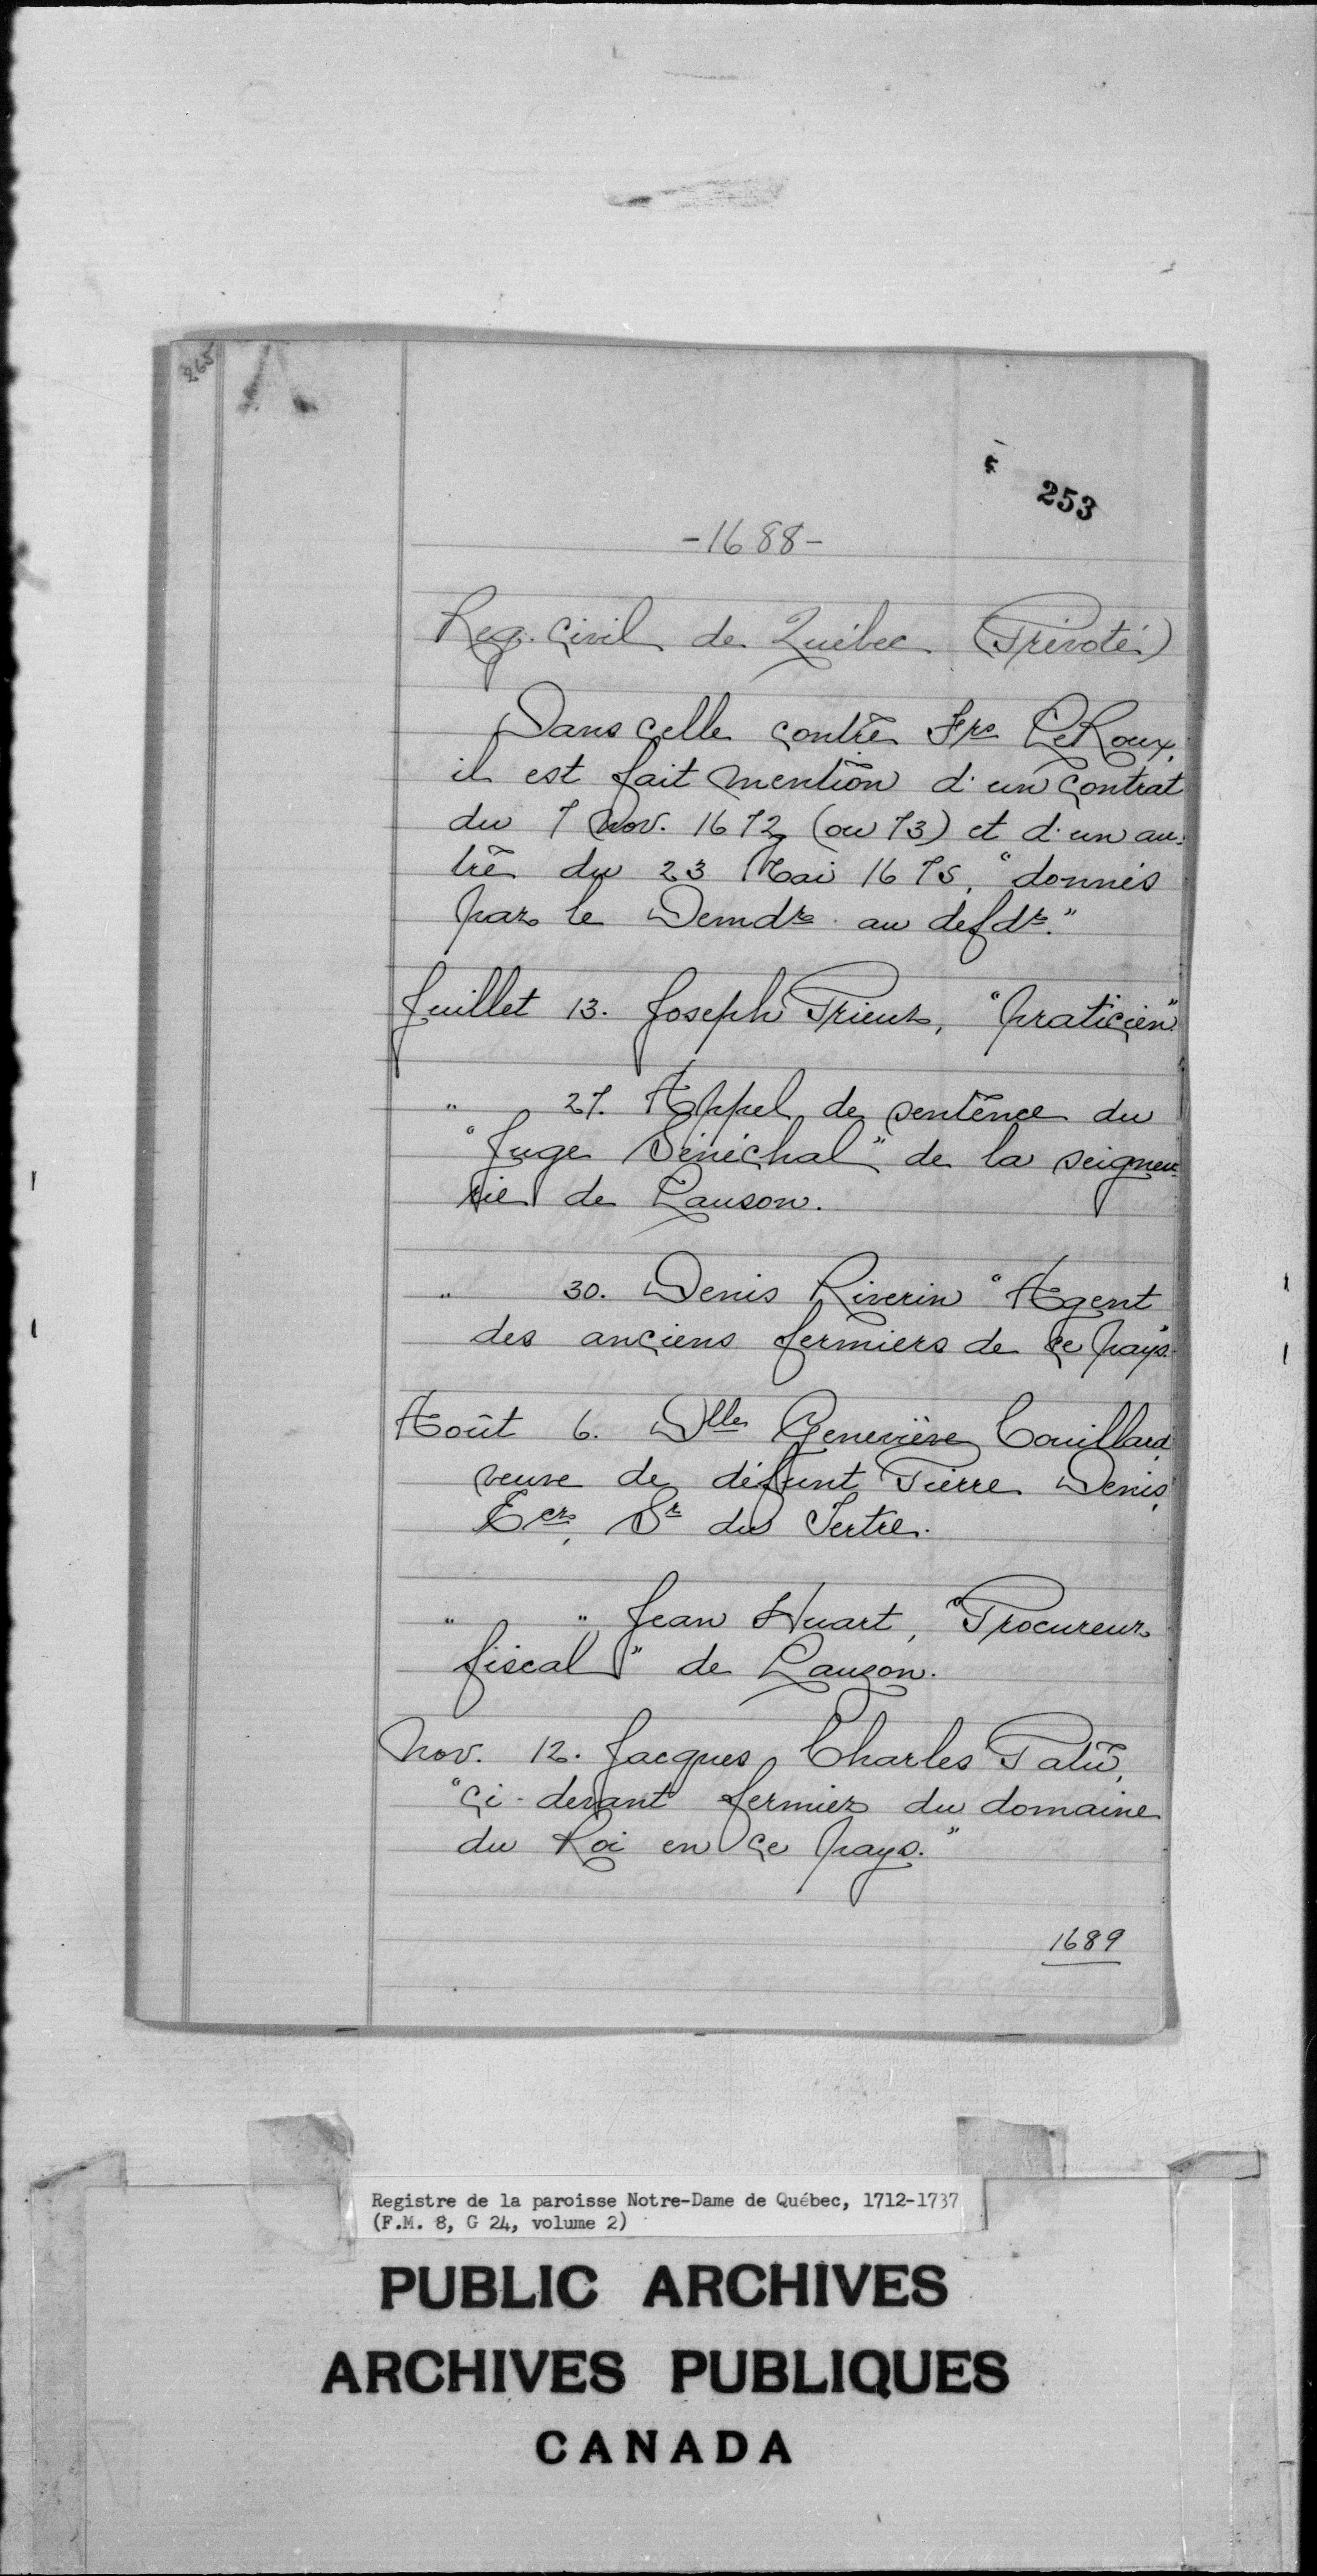 265
253
-1688-
Reg. Civil de Québec (Prévoté)
Dans celle contre Frs LeRoux,
il est fait mention d'un contrat
du 7 Nov. 1672 (ou 73) et d'un au-
tre du 23 Mai 1675, "donnés
par le Demdr au defdr."
Juillet 13. Joseph Prieur, "praticien"
" 27. Appel de sentence du
"Juge Sénéchal" de la seigneu-
rie de Lauson.
" 30. Denis Riverin "Agent
des anciens fermiers de ce pays"
Août 6. Dlle Geneviève Couillard
veuve de défunt Pierre Denis,
Ecr, Sr du Tertre.
" " Jean Huart, "Procureur
fiscal" de Lauzon.
Nov. 12. Jacques Charles Patu,
"ci-devant fermier du domaine
du Roi en ce pays."
1689
Registre de la paroisse Notre-Dame de Québec, 1712-1737
(F.M. 8, G 24, volume 2)
PUBLIC ARCHIVES
ARCHIVES PUBLIQUES
CANADA